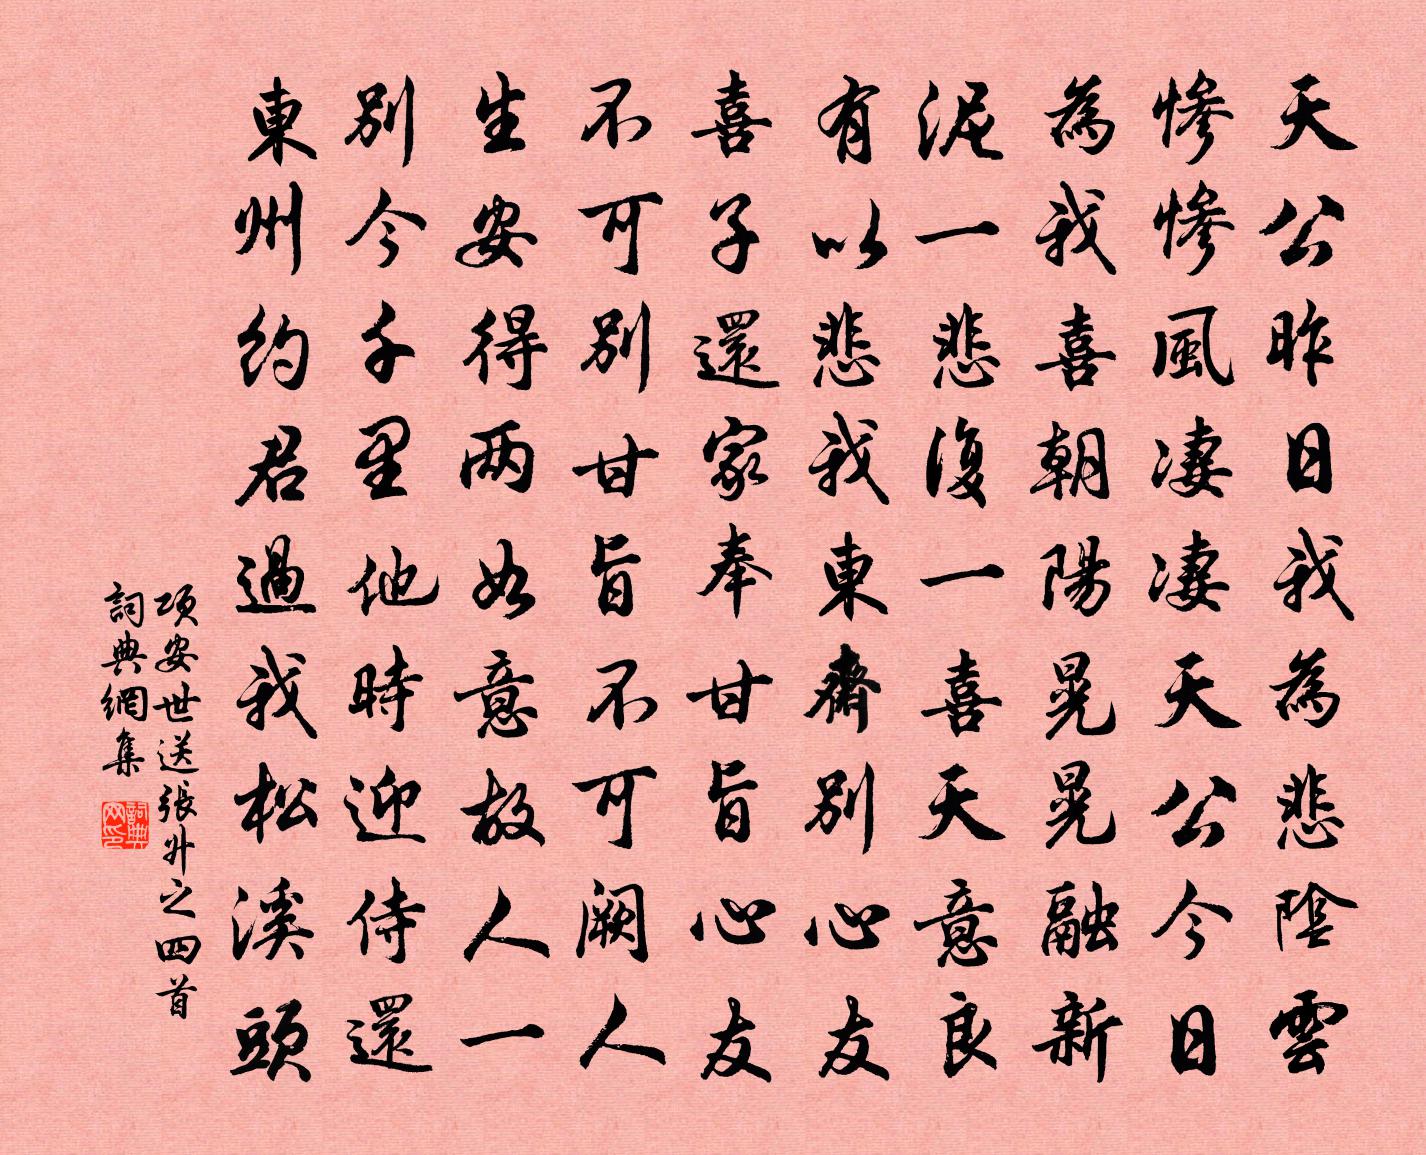 天公昨日我為悲陰雲
慘慘風凄凄天公今日
為我喜朝陽晃晃融新
泥一悲復一喜天意良
有以悲我東齋別心友
喜子還家奉甘旨心友
不可別甘旨不可闕人
生安得兩如意故人一
別今千里他時迎侍還
東州約君過我松溪頭
項安世送張升之四首
詞典網集